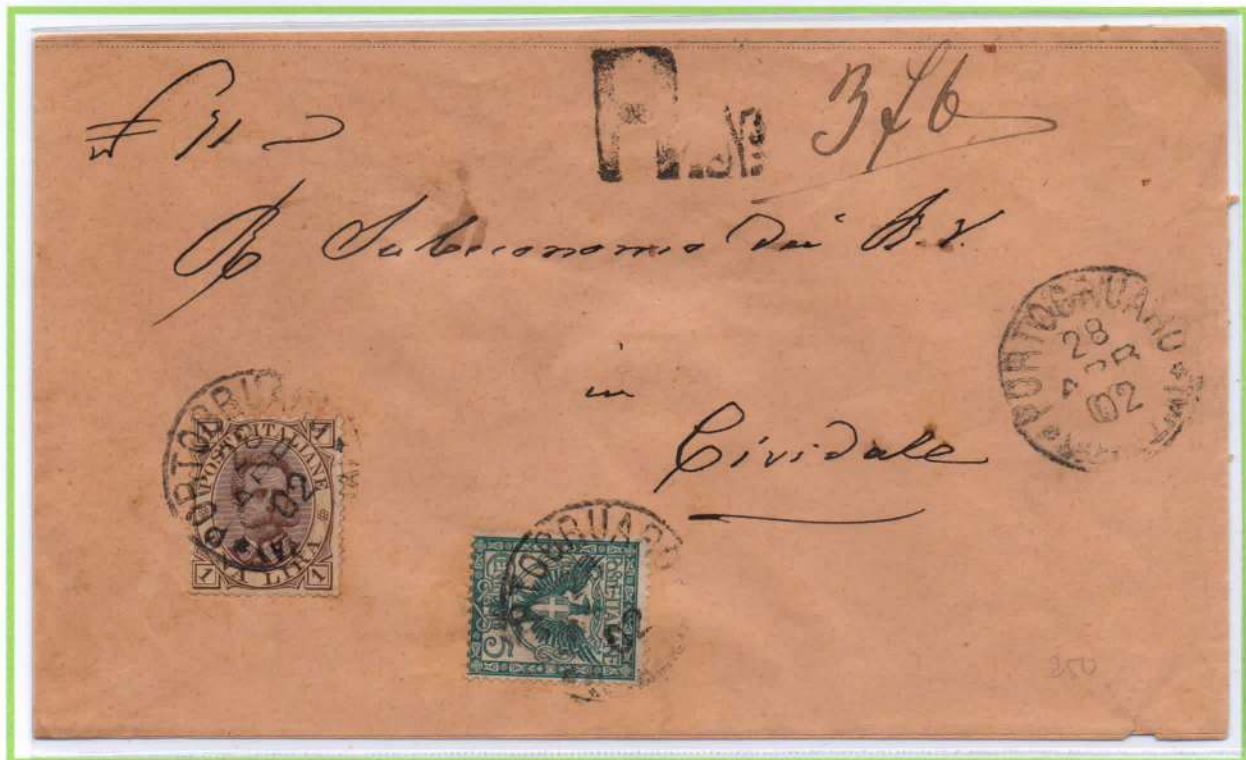 R
376
N 91
Al Subeconomo dei B. V.
in
Cividale
PORTOGRUARO
28
APR
02
PORTOGRUARO
02
POSTE ITALIANE
1 1
UNA LIRA
1 1
PORTOGRUARO
02
POSTE ITALIANE
5
250